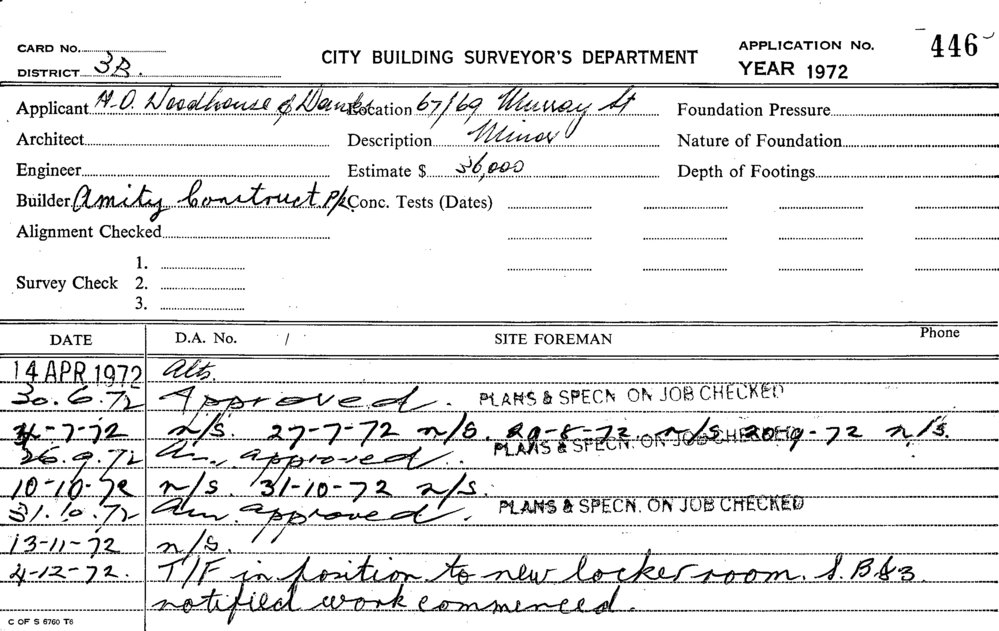 CARD No.
DISTRICT 3B.
CITY BUILDING SURVEYOR'S DEPARTMENT
APPLICATION No. 446
YEAR 1972
Applicant H.O. Woodhouse & Danks
Location 67/69 Murray St
Foundation Pressure
Architect
Description Minor
Nature of Foundation
Engineer
Estimate $ 36,000
Depth of Footings
Builder Amity Construct. P/L.
Conc. Tests (Dates)
Alignment Checked
Survey Check
1.
2.
3.
DATE D.A. No. / SITE FOREMAN Phone
14 APR 1972 Alts.
30.6.72 Approved. PLANS & SPECN. ON JOB CHECKED
4-7-72 n/s. 27-7-72 n/s. 29-8-72 n/s 20-9-72 n/s.
26.9.72 Am. approved. PLANS & SPECN. ON JOB CHECKED
10-10-72 n/s. 31-10-72 n/s.
31.10.72 Am. approved. PLANS & SPECN. ON JOB CHECKED
13-11-72 n/s.
4-12-72. T/F in position to new locker room. S.B&3
notified work commenced.
C OF S 6760 T6